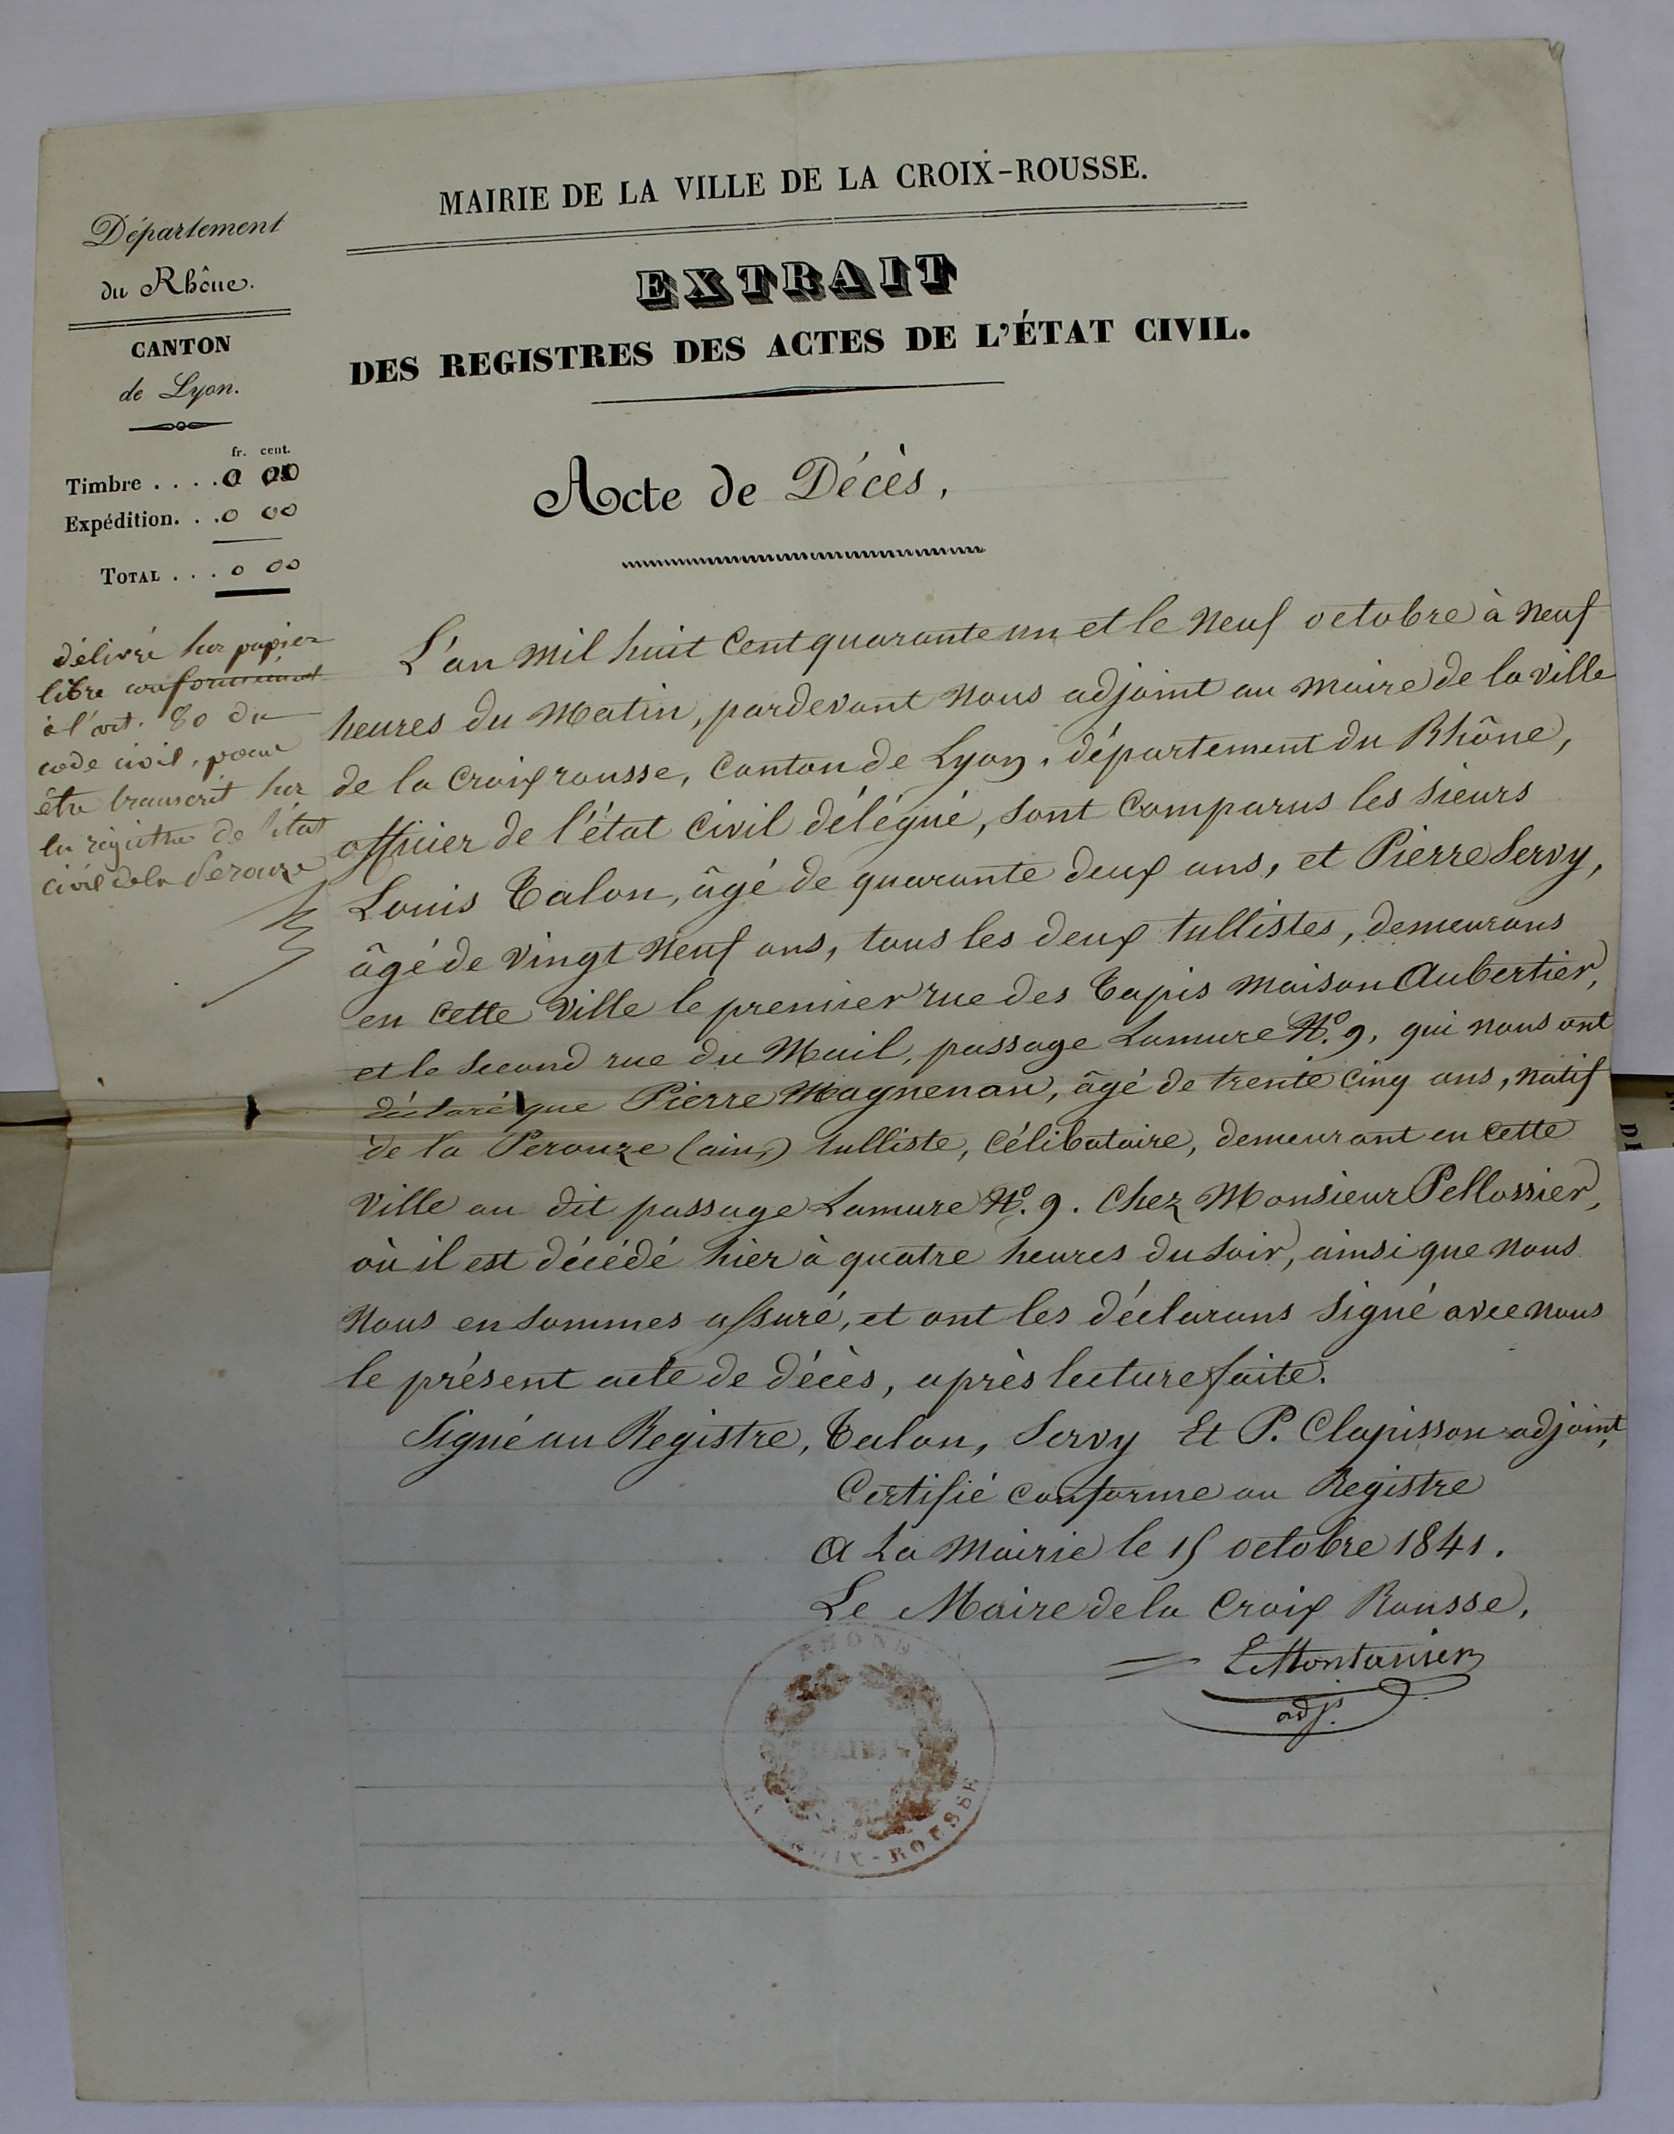 MAIRIE DE LA VILLE DE LA CROIX-ROUSSE.
Département
du Rhône.
CANTON
de Lyon.
fr. cent.
Timbre . . . . 0 00
Expédition. . . 0 00
TOTAL . . . 0 00
délivré sur papier
libre conformément
à l'art. 80 du
code civil, pour
être transcrit sur
les régistres de l'état
civil de la Perouze
EXTRAIT
DES REGISTRES DES ACTES DE L'ÉTAT CIVIL.
Acte de Décès,
L'an mil huit cent quarante un et le neuf octobre à neuf
heures du matin, pardevant nous adjoint au maire de la ville
de la Croix rousse, canton de Lyon, département du Rhône,
officier de l'état civil délégué, sont comparus les sieurs
Louis Talon, âgé de quarante deux ans, et Pierre Servy,
âgé de vingt neuf ans, tous les deux tullistes, demeurans
en cette ville le premier rue des Tapis maison Aubertier,
et le second rue du Mail, passage Lamure N.º 9, qui nous ont
déclaré que Pierre Magnenan, âgé de trente cinq ans, natif
de la Perouze (ain,) tulliste, célibataire, demeurant en cette
ville au dit passage Lamure N.º 9. chez Monsieur Pellossier,
où il est décédé hier à quatre heures du soir, ainsi que nous
nous en sommes assuré, et ont les déclarans signé avec nous
le présent acte de décès, après lecture faite.
Signé au Registre, Talon, Servy Et P. Clapisson adjoint,
Certifié conforme au Registre
A La Mairie le 15 octobre 1841.
Le Maire de la Croix Rousse,
E Montanier
adj.t
RHONE
MAIRIE
LA CROIX-ROUSSE
DI